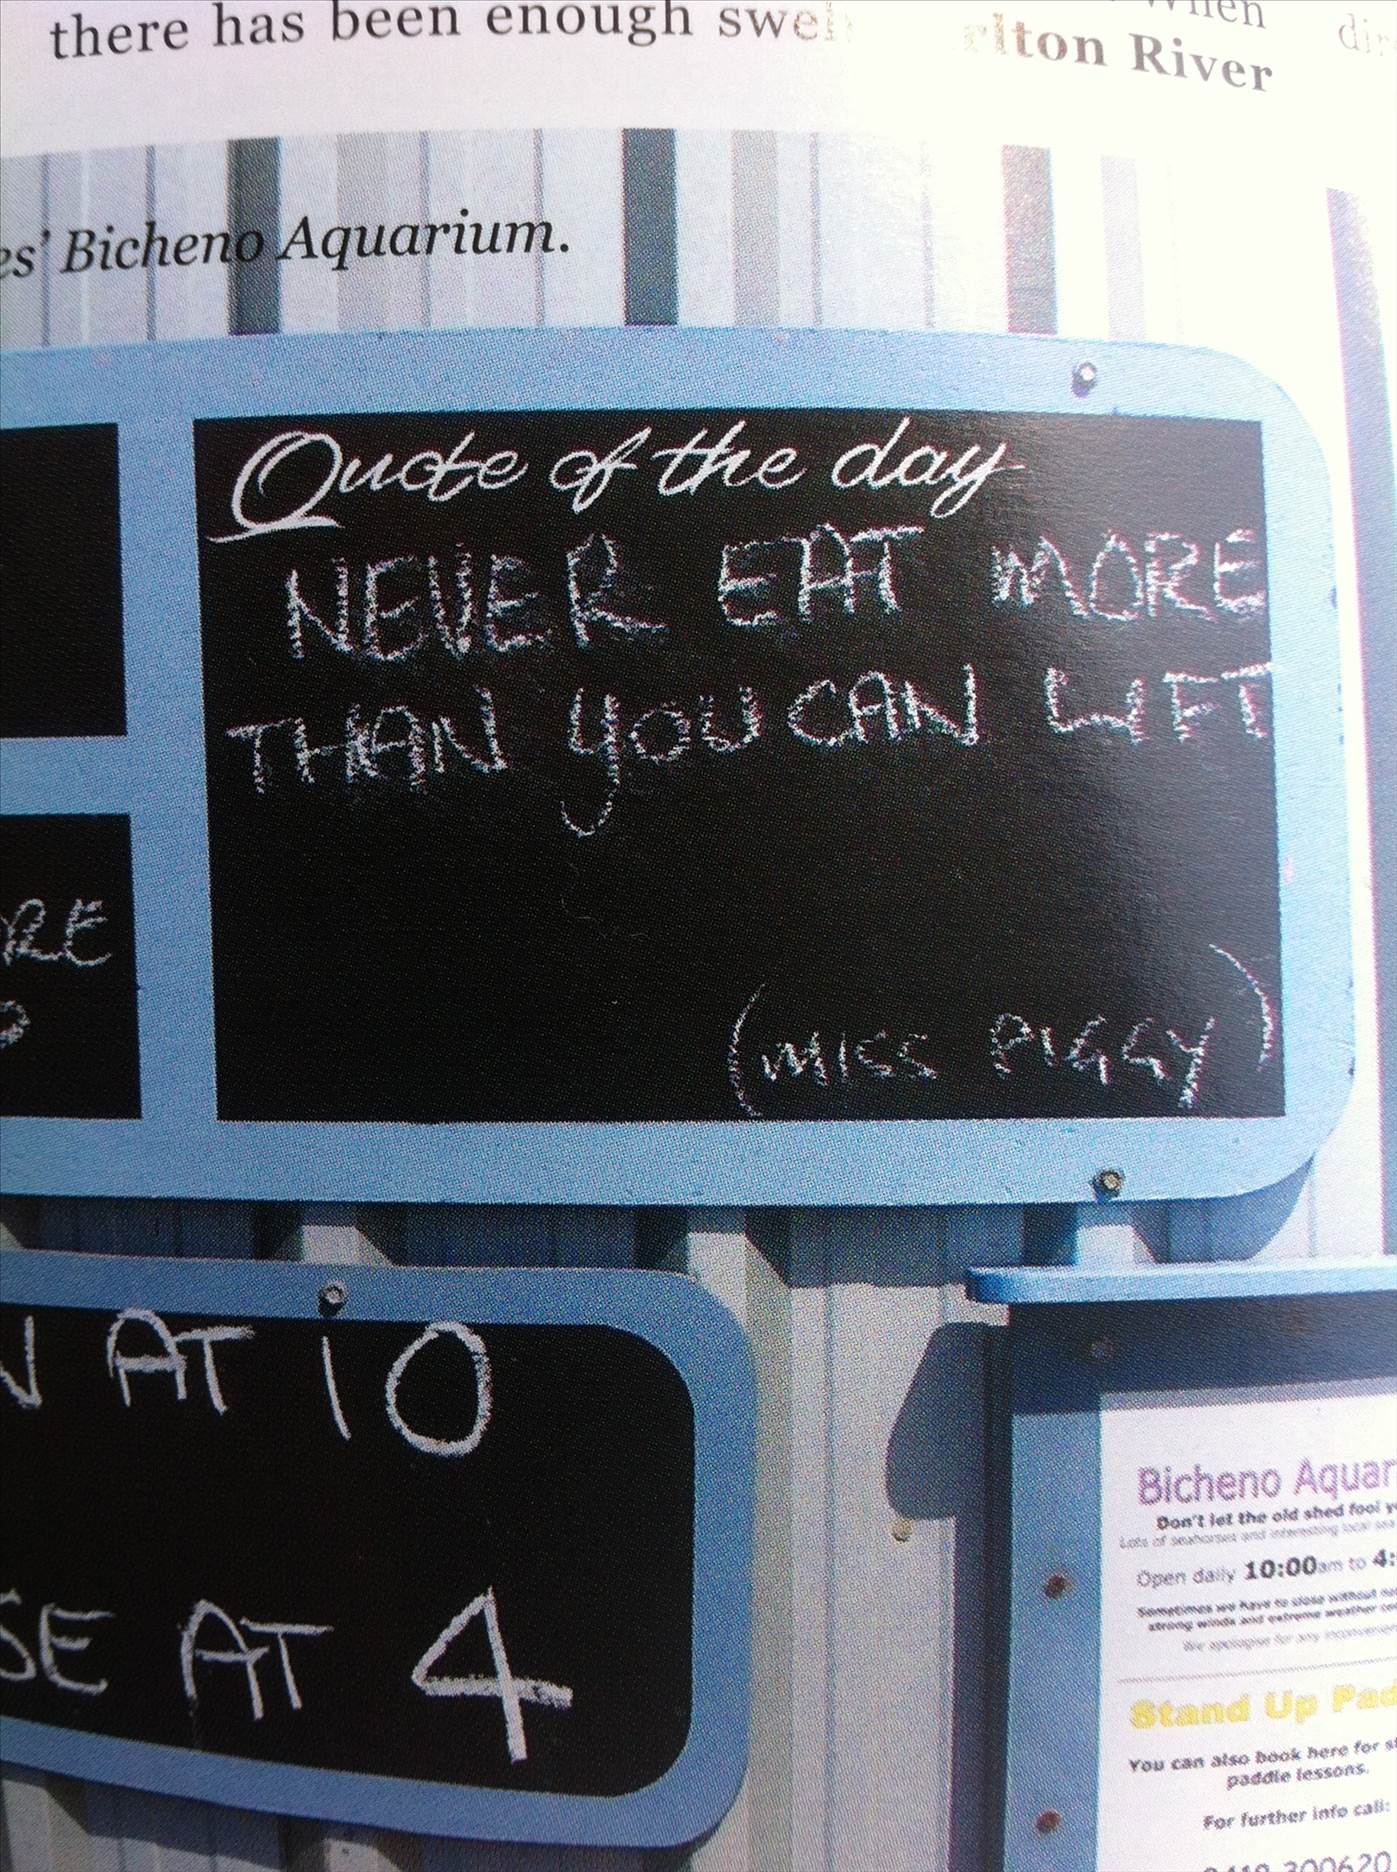 there has been enough
River
Bicheno Aquarium.
Quote of the day
NEVER EAT MORE
THAN YOU CAN LIFT
(MISS PIGGY)
AT 10
AT 4
Bicheno
Don't let the old shed fool
Lots of seahorses and interesting local sea
Open daily 10:00am to
Sometimes we have to close without
strong winds and extreme weather
We apologise for any
Stand Up
You can also book here for
paddle lessons.
For further info call:
300620